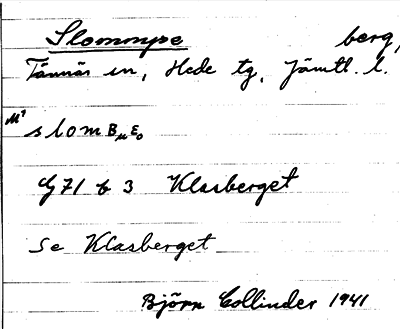 Slommpe berg,
Tännäs sn, Hede tg, Jämtl. l.
G 71 b 3 Klasberget
Se Klasberget
Björn Collinder 1941